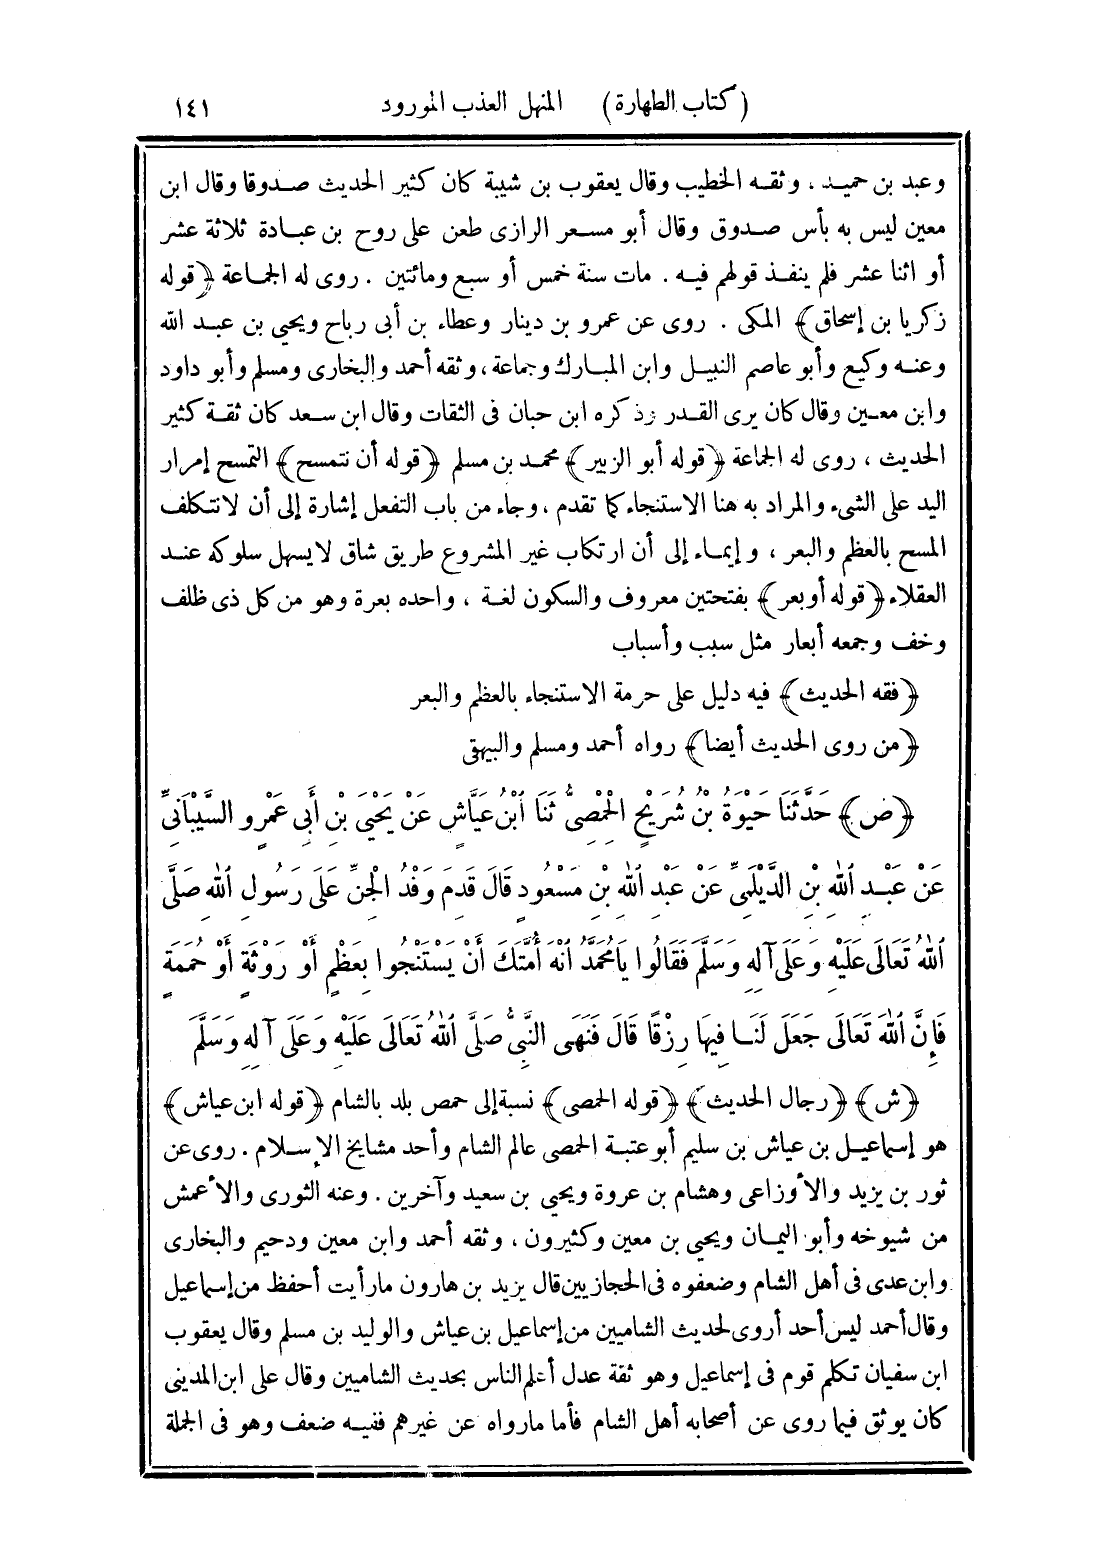 (كتاب الطهارة) المنهل العذب المورود ١٤١
وعبد بن حميد، وثقه الخطيب وقال يعقوب بن شيبة كان كثير الحديث صدوقا وقال ابن
معين ليس به بأس صدوق وقال أبو مسعر الرازى طعن على روح بن عبادة ثلاثة عشر
أو اثنا عشر فلم ينفذ قولهم فيه. مات سنة خمس أو سبع ومائتين. روى له الجماعة ﴿قوله
زكريا بن إسحاق﴾ المكى. روى عن عمرو بن دينار وعطاء بن أبى رباح ويحيى بن عبد الله
وعنه وكيع وأبو عاصم النبيل وابن المبارك وجماعة، وثقه أحمد والبخارى ومسلم وأبو داود
وابن معين وقال كان يرى القدر وذكره ابن حبان فى الثقات وقال ابن سعد كان ثقة كثير
الحديث، روى له الجماعة ﴿قوله أبو الزبير﴾ محمد بن مسلم ﴿قوله أن نتمسح﴾ التمسح إمرار
اليد على الشىء والمراد به هنا الاستنجاء كما تقدم، وجاء من باب التفعل إشارة إلى أن لا نتكلف
المسح بالعظم والبعر، وإيماء إلى أن ارتكاب غير المشروع طريق شاق لا يسهل سلوكه عند
العقلاء ﴿قوله أو بعر﴾ بفتحتين معروف والسكون لغة، واحده بعرة وهو من كل ذى ظلف
وخف وجمعه أبعار مثل سبب وأسباب
﴿فقه الحديث﴾ فيه دليل على حرمة الاستنجاء بالعظم والبعر
﴿من روى الحديث أيضا﴾ رواه أحمد ومسلم والبيهقى
﴿ص﴾ حَدَّثَنَا حَيْوَةُ بْنُ شُرَيْحٍ الْحِمْصِىُّ ثَنَا ابْنُ عَيَّاشٍ عَنْ يَحْيَى بْنِ أَبِى عَمْرٍو السَّيْبَانِىِّ
عَنْ عَبْدِ اللهِ بْنِ الدَّيْلَمِىِّ عَنْ عَبْدِ اللهِ بْنِ مَسْعُودٍ قَالَ قَدِمَ وَفْدُ الْجِنِّ عَلَى رَسُولِ اللهِ صَلَّى
اللهُ تَعَالَى عَلَيْهِ وَعَلَى آلِهِ وَسَلَّمَ فَقَالُوا يَا مُحَمَّدُ انْهَ أُمَّتَكَ أَنْ يَسْتَنْجُوا بِعَظْمٍ أَوْ رَوْثَةٍ أَوْ حُمَمَةٍ
فَإِنَّ اللهَ تَعَالَى جَعَلَ لَنَا فِيهَا رِزْقًا قَالَ فَنَهَى النَّبِىُّ صَلَّى اللهُ تَعَالَى عَلَيْهِ وَعَلَى آلِهِ وَسَلَّمَ
﴿ش﴾ ﴿رجال الحديث﴾ ﴿قوله الحمصى﴾ نسبة إلى حمص بلد بالشام ﴿قوله ابن عياش﴾
هو إسماعيل بن عياش بن سليم أبو عتبة الحمصى عالم الشام وأحد مشايخ الإسلام. روى عن
ثور بن يزيد والأوزاعى وهشام بن عروة ويحيى بن سعيد وآخرين. وعنه الثورى والأعمش
من شيوخه وأبو اليمان ويحيى بن معين وكثيرون، وثقه أحمد وابن معين ودحيم والبخارى
وابن عدى فى أهل الشام وضعفوه فى الحجازيين قال يزيد بن هارون ما رأيت أحفظ من إسماعيل
وقال أحمد ليس أحد أروى لحديث الشاميين من إسماعيل بن عياش والوليد بن مسلم وقال يعقوب
ابن سفيان تكلم قوم فى إسماعيل وهو ثقة عدل أعلم الناس بحديث الشاميين وقال على ابن المدينى
كان يوثق فيما روى عن أصحابه أهل الشام فأما مارواه عن غيرهم ففيه ضعف وهو فى الجملة